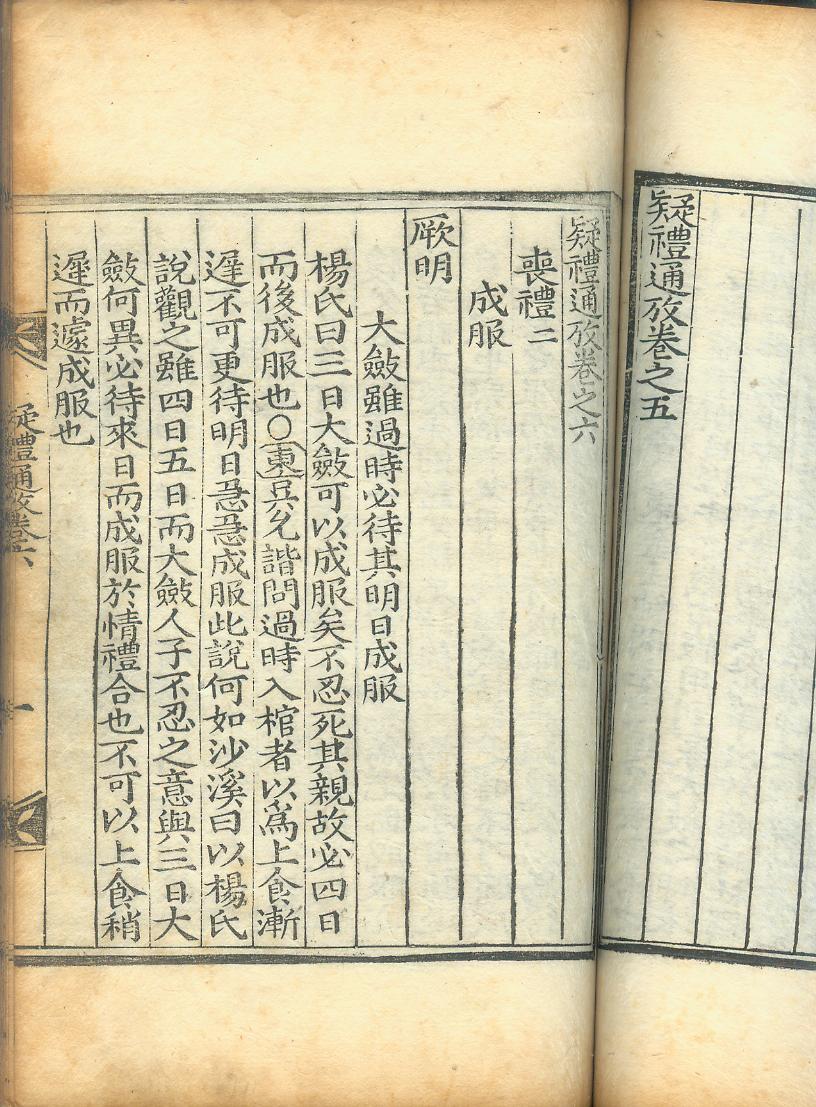 疑禮通攷卷之五
疑禮通攷卷之六
喪禮二
成服
厥明
大斂雖過時必待其明日成服
楊氏曰三日大斂可以成服矣不忍死其親故必四日
而後成服也○東豆允諧問過時入棺者以爲上食漸
遟不可更待明日忽忽成服此說何如沙溪曰以楊氏
說觀之雖四日五日而大斂人子不忍之意與三日大
斂何異必待來日而成服於情禮合也不可以上食稍
遟而遽成服也
疑禮通攷卷六
一